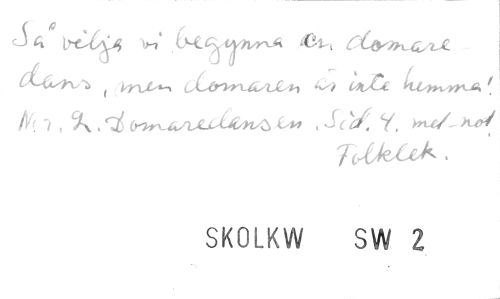 Så vilja vi begynna en domare-
dans, men domaren är inte hemma!
Nr. 2. Domaredansen. Sid. 4. mel-not.
Folklek.
SKOLKW SW 2